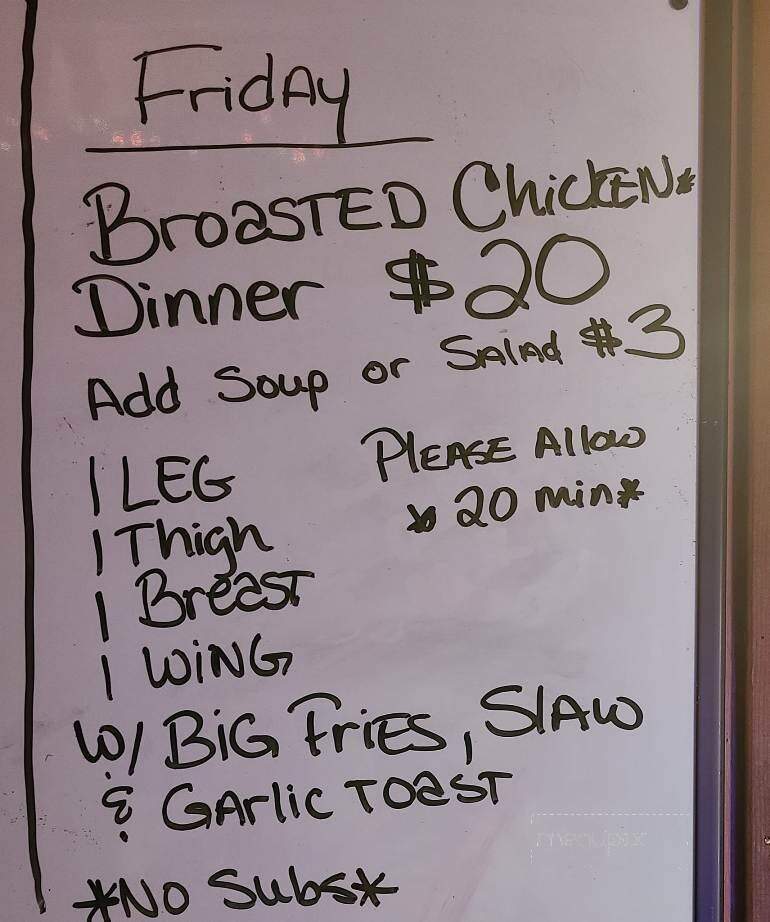 FridAy
BroaSTED ChickEN*
Dinner $20
Add Soup or SalAd $3
PLEASE Allow
* 20 min*
1 LEG
1 Thigh
1 BreaST
1 WiNG
w/ BiG FriES, SlAw
& GArlic TOaST
*No Subs*
menupix